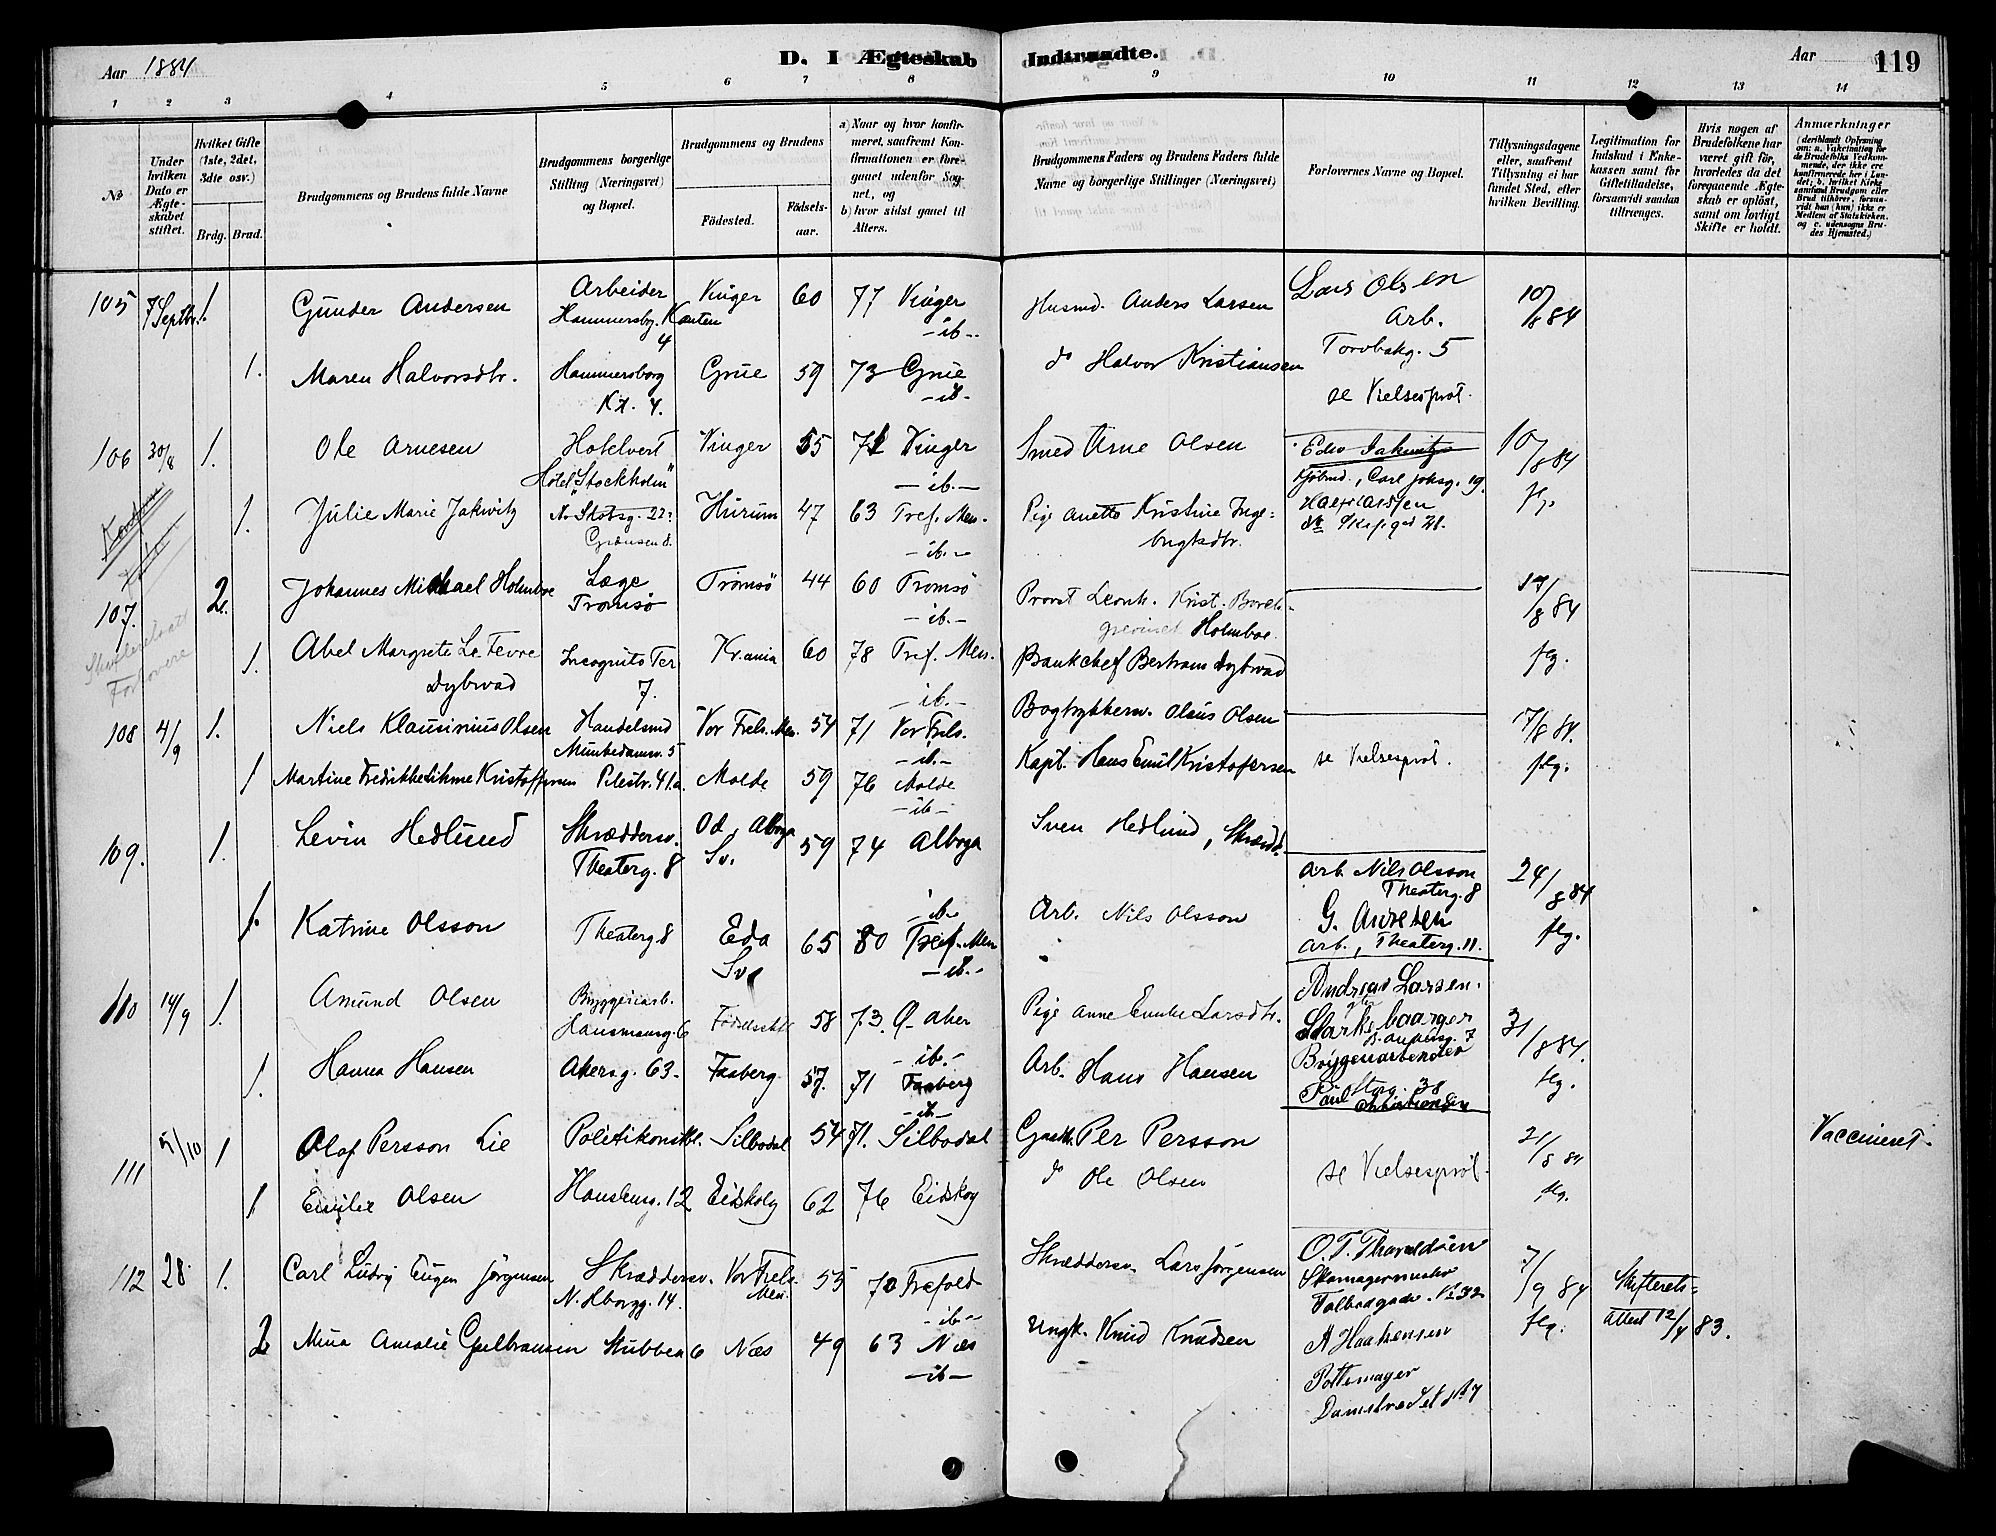 Aar 1884
D. I Ægteskab Indtraadte.
Aar
119
1 2 3 4 5 6 7 8 9 10 11 12 13 14
No
Under hvilken Dato er Ægteskabet stiftet.
Hvilket Gifte (1ste, 2det, 3die osv.)
Brdg. Brud.
Brudgommens og Brudens fulde Navne
Brudgommens borgerlige Stilling (Næringsvei) og Bopæl.
Brudgommens og Brudens
Fødested.
Fødselsaar.
a) Naar og hvor konfirmeret, saafremt Konfirmationen er foregaaet udenfor Sognet, og
b) hvor sidst gaaet til Alters.
Brudgommens Faders og Brudens Faders fulde Navne og borgerlige Stillinger (Næringsvei)
Forlovernes Navne og Bopæl.
Tillysningsdagene eller, saafremt Tillysning ei har fundet Sted, efter hvilken Bevilling.
Legitimation for Indskud i Enkekassen samt for Giftetilladelse, forsaavidt saadan tiltrænges.
Hvis nogen af Brudefolkene har været gift før, hvorledes da det foregaaende Ægteskab er opløst, samt om lovligt Skifte er holdt.
Anmærkninger (deriblandt Oplysning om: a. Vakcination for de Brudefolks Vedkommende, der ikke ere konfirmerede her i Landet; b. hvilket Kirkesamfund Brudgom eller Brud tilhører, forsaavidt han (hun) ikke er Medlem af Statskirken, og c. udensogns Brudes Hjemsted.)
105 7 Septbr. 1. Gunder Andersen Arbeider Vinger 60 77 Vinger Husmd. Anders Larsen Lars Olsen 10/8 84
Hammersbg. Kanten 4 - ib - Arb.
Torvbakg. 5
1. Maren Halvorsdtr. Hammersborg Grue 59 73 Grue do Halvor Kristiansen
Kt. 4. - ib - se Vielsesprot.
106 30/8 1. Ole Arnesen Hotelvert Vinger 55 71 Vinger Smed Arne Olsen Edw Jakwitz 10/8 84
Hotel "Stockholm" - ib. - Kjøbmd., Carl Johsg. 19.
1. Julie Marie Jakwitz N. Slotsg. 22 Hurum 47 63 Tref. Men. Pige Anette Kristine Inge- flg.
Grænsen 8. - ib. - brigtsdtr.
107. 2. Johannes Michael Holmboe Læge Tromsö 44 60 Tromsö Provst Leonh. Krist. Borch- 17/8 84
Tromsö - ib. - grevinck Holmboe
1. Abel Margrete Le Fevre Incognito Ter Kr.ania 60 78 Tref. Men. Bankchef Bertram Dybwad flg.
Dybwad 7. - ib. -
108 4/9 1. Niels Klausinius Olsen Handelsmd Vor Frels. Men. 54 71 Vor Frels. Bogtrykkersv. Olaus Olsen 17/8 84.
Munkedamsv. 5 - ib. -
1 Martine Fredrikke Kristoffersen Pilestr. 41a. Molde 59 76 Molde Kapt. Hans Emil Kristofersen se Vielsesprot. flg.
- ib -
109. 1. Levin Hedlund Skræddersv. Od, Alboga 59 74 Alboga Sven Hedlund, Skrædd.
Theaterg. 8 Sv. - ib. - Arb. Nils Olsson 24/8 84
Theaterg. 8
1. Katrine Olsson Theaterg. 8 Eda 65 80 Tref. Men Arb. Nils Olsson G. Andresen flg.
Sve - ib. - Arb., Theaterg. 11.
110 14/9 1. Amund Olsen Bryggeriarb. Födselsst 58 73. Aker Pige Anne Larsdtr. Andreas Larsen.
Hausmansg. 6 - ib. - 31/8 84.
1. Hanna Hansen Akersg. 63. Faaberg 57. 71 Faaberg Arb. Hans Hansen Bryggeriarbeider flg.
- ib - Storg. 38
111 5/10 1 Olaf Persson Lie Politikonstbl. Silbodal 54 71. Silbodal Gaardbr. Per Persson 21/8 84 Vaccineret.
1 Emilie Olsen Hausmg. 12 Eidskog 62 76 Eidskog do Ole Olsen se Vielsesprot. flg.
112 28. 1. Carl Ludvig Eugen Jørgensen Skræddersv. Vor Frels. Men. 55 70 Trefold Skræddersv. Lars Jørgensen O. T. Tharaldsen 7/9 84 Skifterets-
N. Hborgg. 14. - ib - Skomagermester flg. attest 12/4 83.
Tolbodgade. N: 32
2 Mina Amalie Gulbransen Stubben 6 Næs 49 63 Næs Ungk. Knud Knudsen A Haakensen
- ib - Pottemager
Damstredet No 7